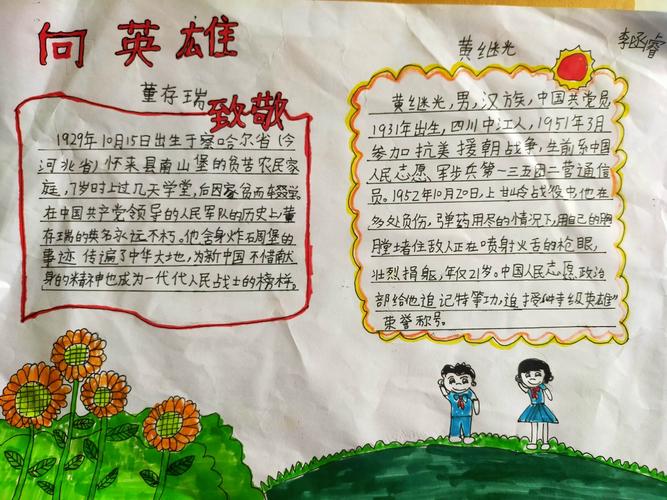 向英雄
致敬
董存瑞
1929年10月15日出生于察哈尔省(今
河北省)怀来县南山堡的贫苦农民家
庭,7岁时上过几天学堂,后因家贫而辍学。
在中国共产党领导的人民军队的历史上,董
存瑞的英名永远不朽。他舍身炸碉堡的
事迹 传遍了中华大地,为新中国 不惜献
身的精神也成为一代代人民战士的榜样。
黄继光
李丞睿
黄继光,男,汉族,中国共党员
1931年出生,四川中江人,1951年3月
参加抗美援朝战争,生前系中国
人民志愿军步兵第一三五团二营通信
员。1952年10月20日,上甘岭战役中,他在
多处负伤,弹药用尽的情况下,用自己的胸
膛堵住敌人正在喷射火舌的枪眼,
壮烈捐躯,年仅21岁。中国人民志愿政治
部给他追记特等功,追授"特级英雄"
荣誉称号。